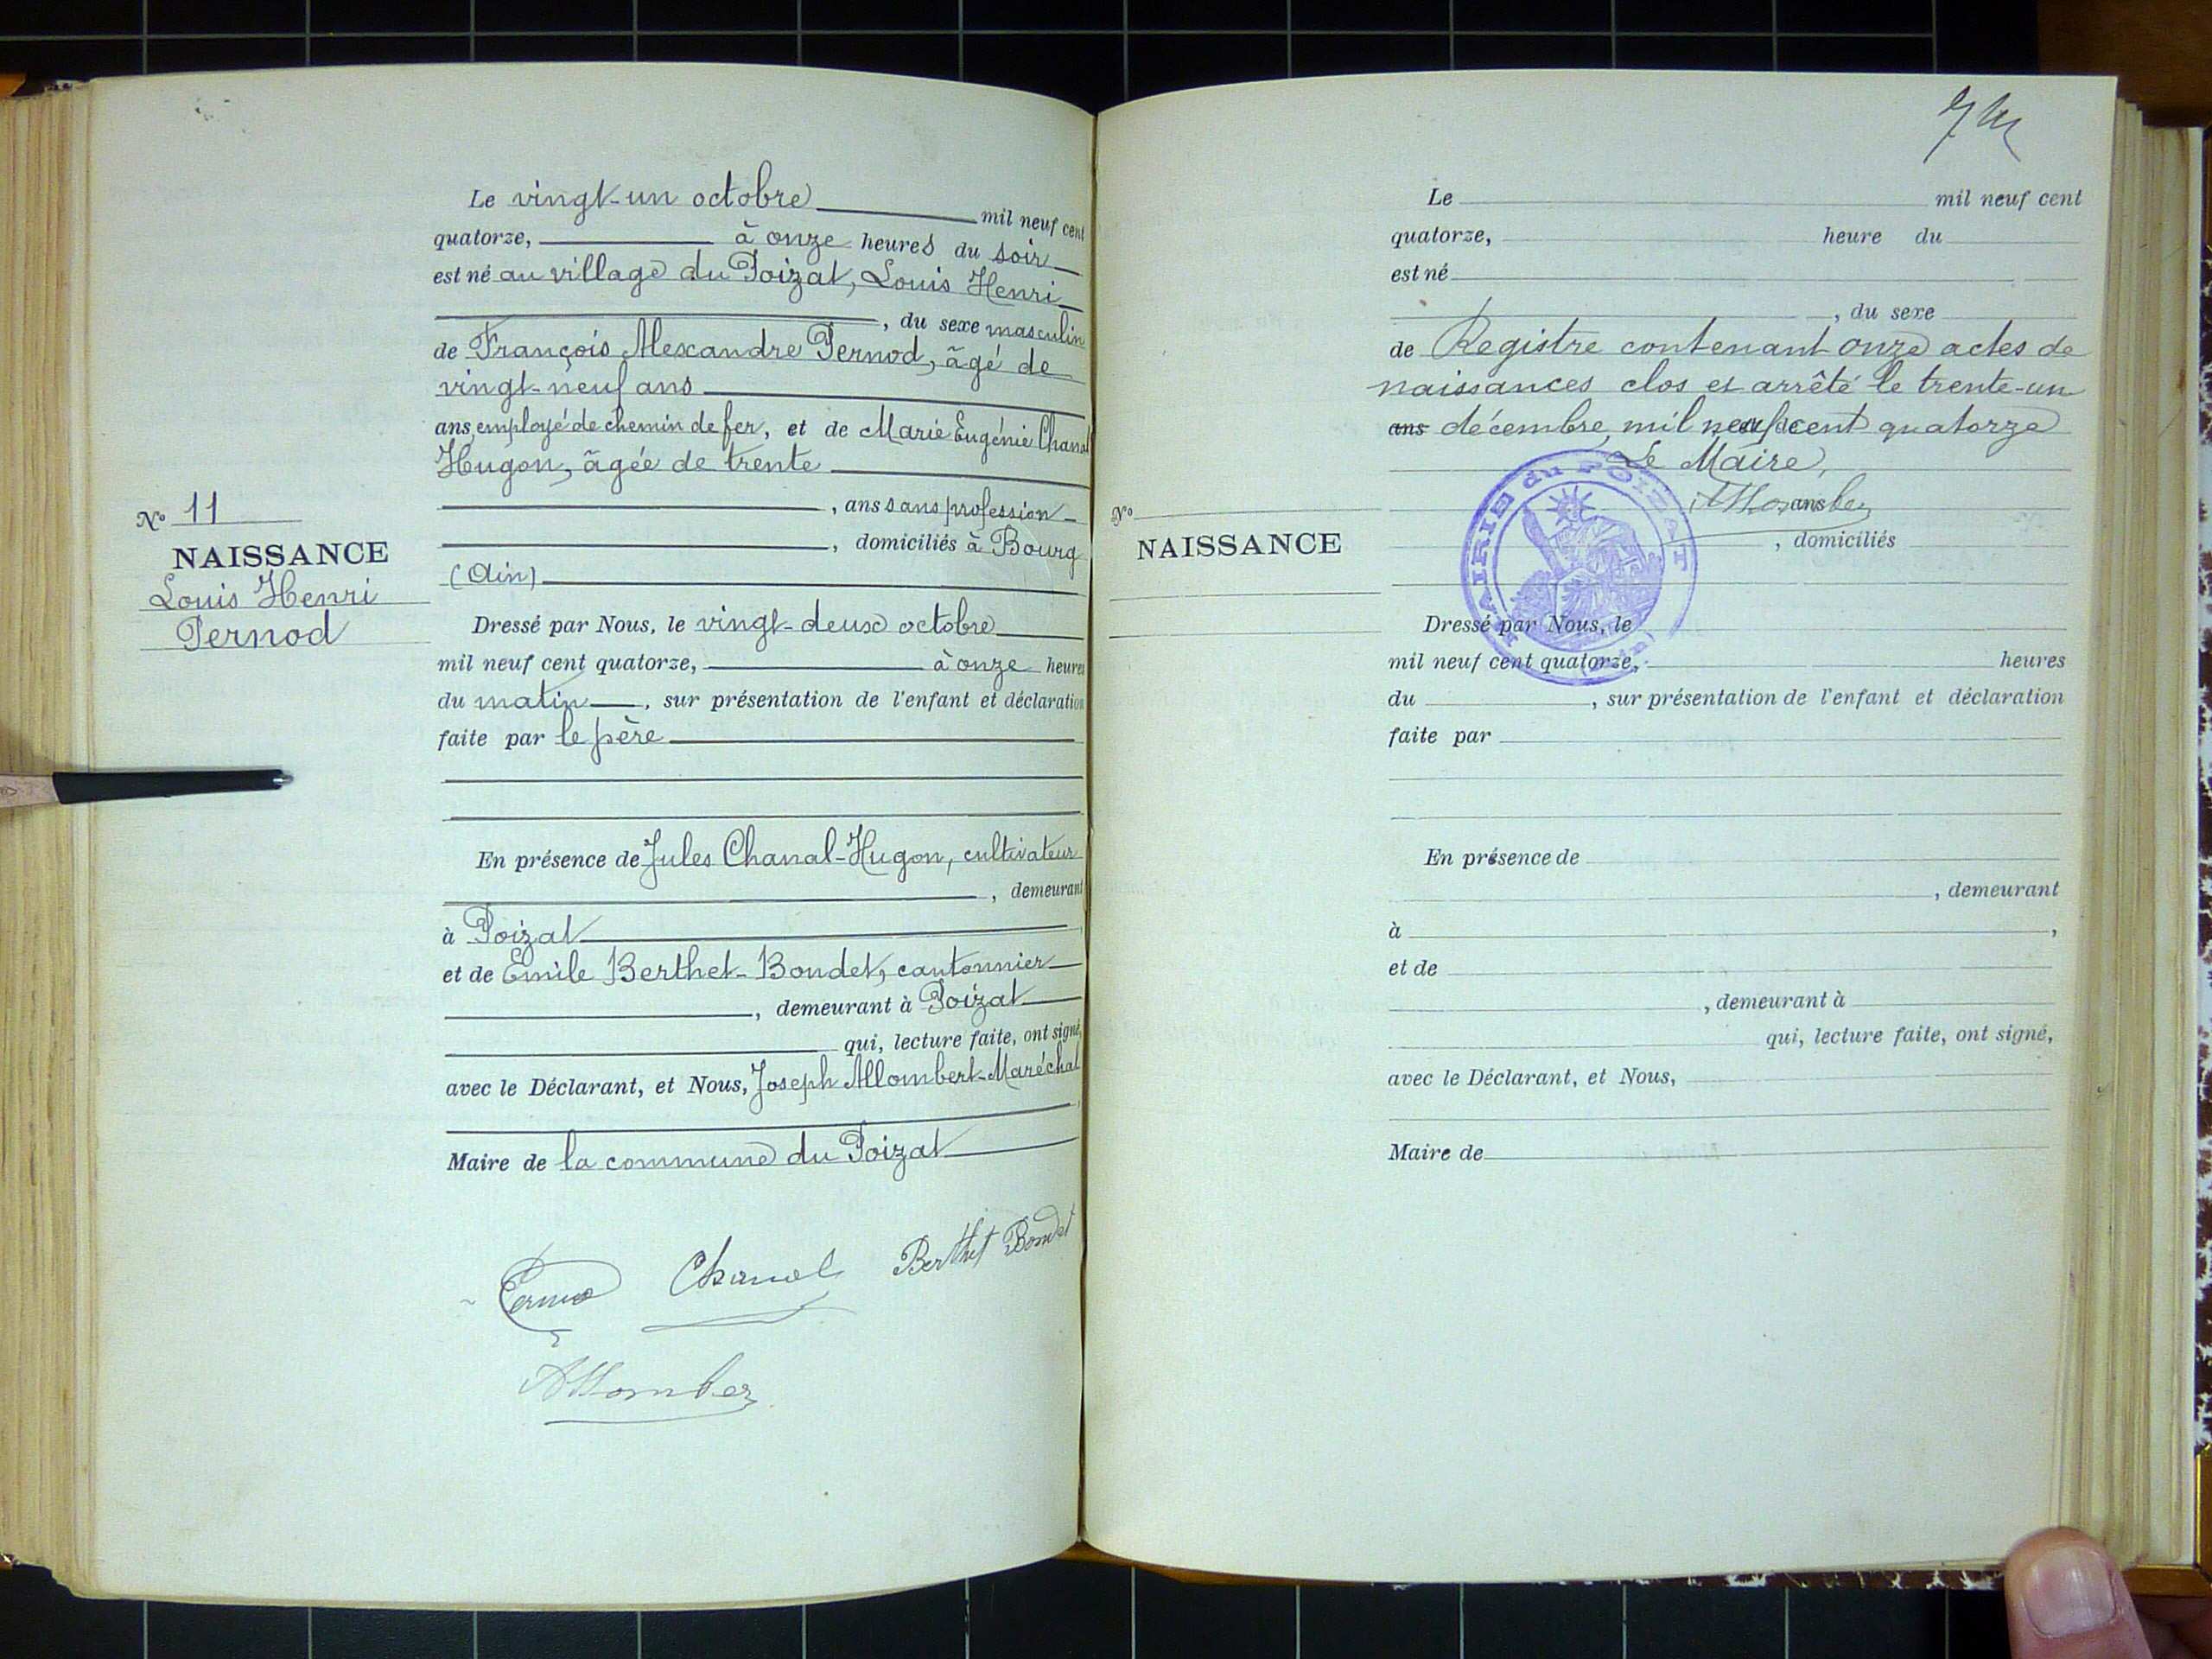 Le vingt-un octobre mil neuf cent
quatorze, à onze heures du soir
est né au village du Poizat, Louis Henri
, du sexe masculin
de François Alexandre Pernod, âgé de
vingt-neuf ans
ans, employé de chemin de fer, et de Marie Eugénie Chanal
Hugon, âgée de trente
, ans sans profession
, domiciliés à Bourg
(Ain)
Nº 11
NAISSANCE
Louis Henri
Pernod
Dressé par Nous, le vingt-deux octobre
mil neuf cent quatorze, à onze heures
du matin, sur présentation de l'enfant et déclaration
faite par le père
En présence de Jules Chanal-Hugon, cultivateur
, demeurant
à Poizat
et de Emile Berthet-Bondet, cantonnier
, demeurant à Poizat
qui, lecture faite, ont signé,
avec le Déclarant, et Nous, Joseph Allombert-Maréchal
,
Maire de la commune du Poizat
Chanal Berthet Bondet
Allombert
Le mil neuf cent
quatorze, heure du
est né
, du sexe
de Registre contenant onze actes de
naissances clos et arrêté le trente-un
ans décembre mil neuf cent quatorze
Le Maire,
Allombert
ans
, domiciliés
MAIRIE du POIZAT
(Ain)
Nº
NAISSANCE
Dressé par Nous, le
mil neuf cent quatorze, heures
du , sur présentation de l'enfant et déclaration
faite par
En présence de
, demeurant
à ,
et de
, demeurant à
qui, lecture faite, ont signé,
avec le Déclarant, et Nous,
Maire de